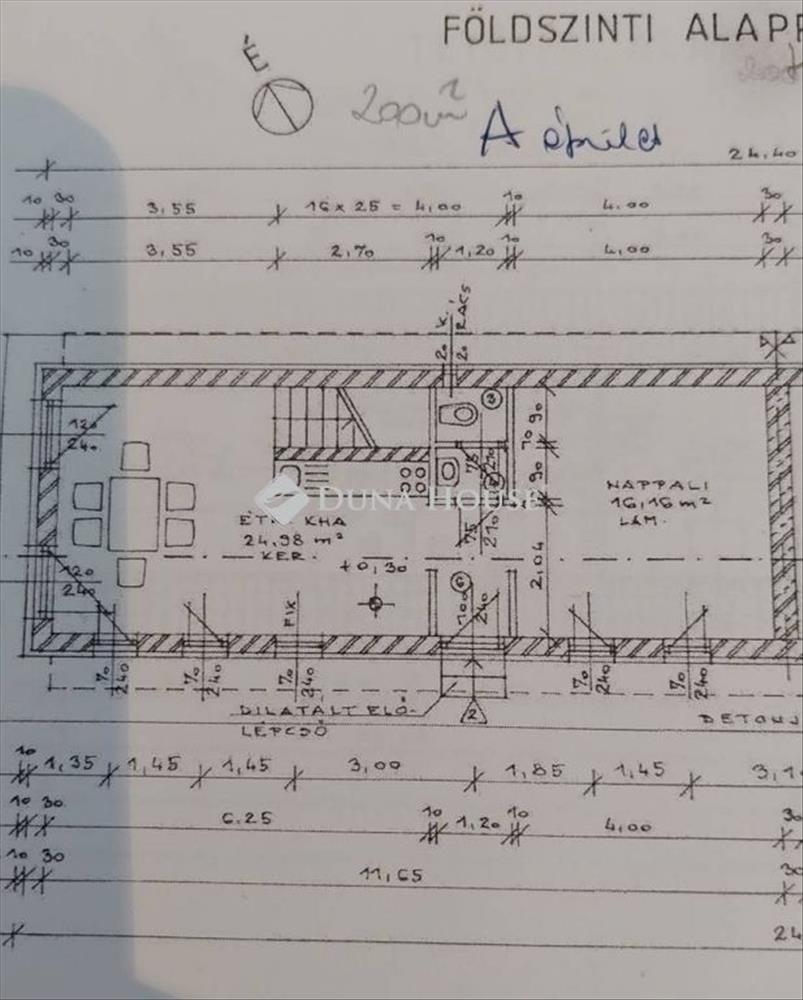 FÖLDSZINTI ALAPR
É
200m²
A épület
24.40
10 30 3,55 16 x 25 = 4,00 10 4.00 30
10 30 3,55 2,70 10 1,20 10 4,00 30
K.
RÁCS
20 20
120
240
3
10 90
75
210
90
NAPPALI
16,16 m²
LAM.
DUNA HOUSE
ÉTK. KHA
24,98 m²
KER.
+0,30
75
210
2,04
120
240
FIX
100
240
70
240
70
240
70
240
70
240
70
240
DILATÁLT ELŐ-
LÉPCSŐ
2
10 1,35 1,45 1,45 3,00 1,85 1,45 3,1
10 30 6.25 10 1,20 10 4,00 30
10 30 11,65 30
24